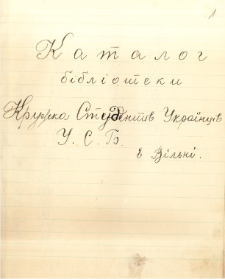 1
Каталог
бібліотеки
Кружка Студентів Українців
У. С. Б.
в Вільні.